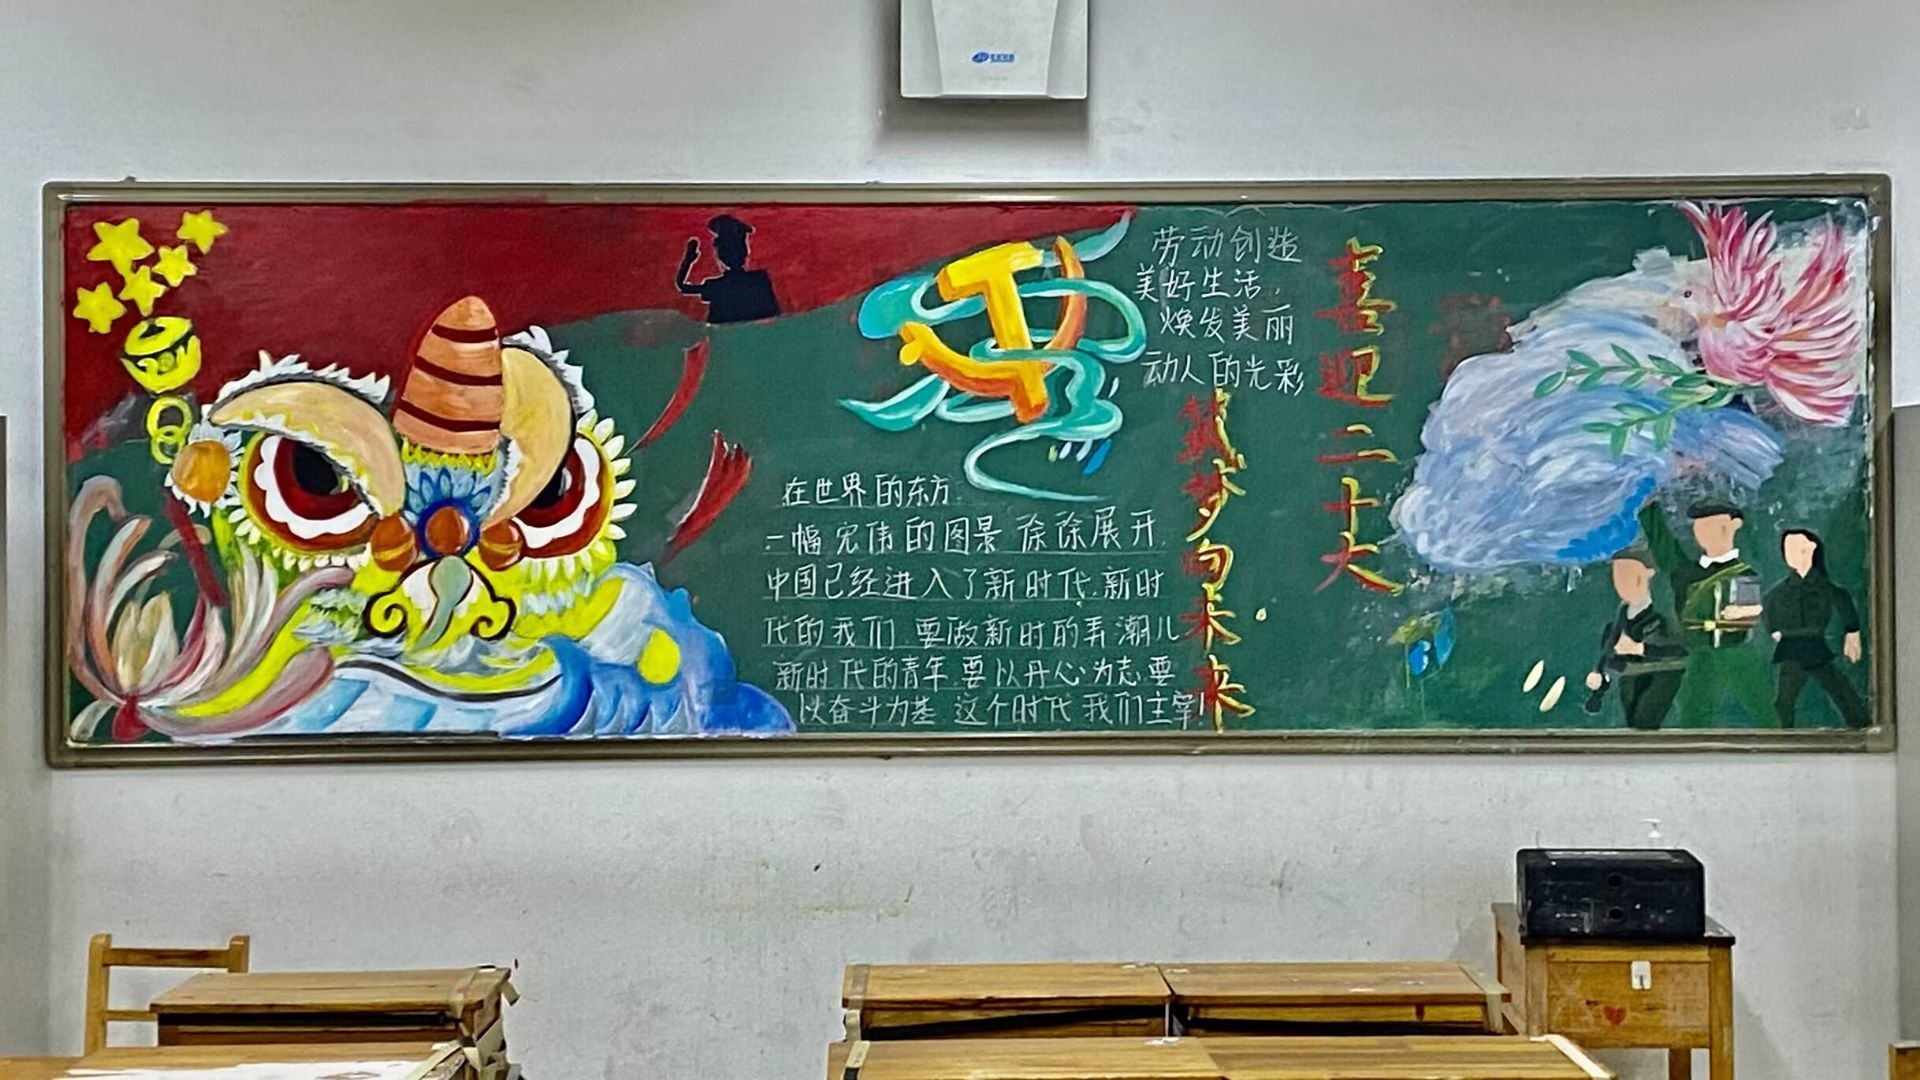 劳动创造
美好生活,
焕发美丽
动人的光彩
喜迎二十大
筑梦向未来
在世界的东方
一幅宏伟的图景 徐徐展开
中国已经进入了新时代.新时
代的我们 要做新时的弄潮儿
新时代的青年 要以丹心为志要
以奋斗为基 这个时代 我们主宰!